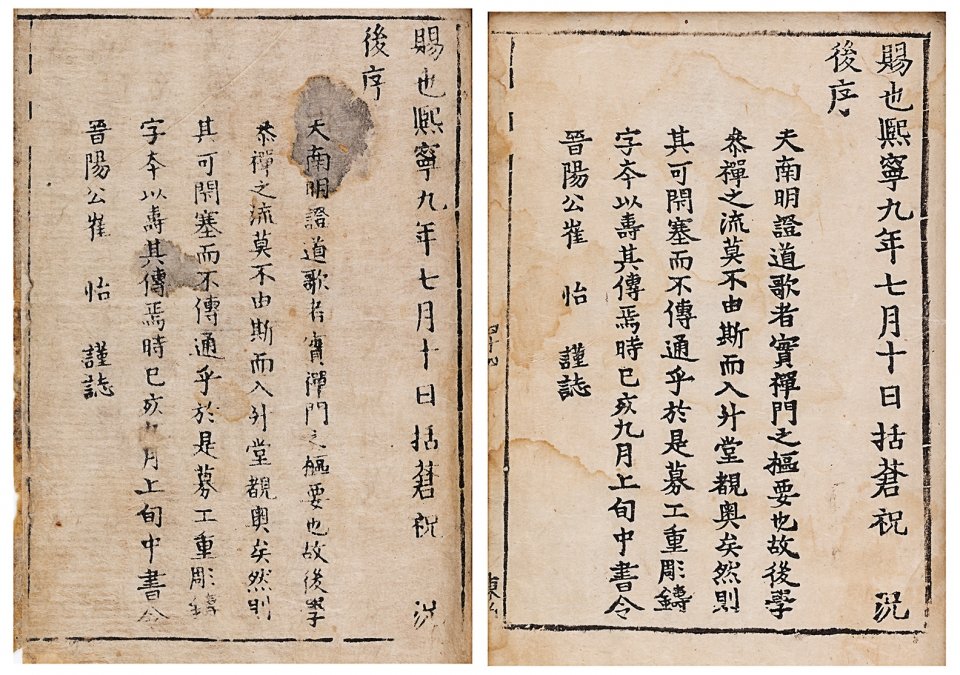 賜也熈寧九年七月十日括蒼祝 況
後序
夫南明證道歌者實禪門之樞要也故後學
叅禪之流莫不由斯而入升堂覩奧矣然則
其可閉塞而不傳通乎於是募工重彫鑄
字夲以壽其傳焉時已亥九月上旬中書令
晉陽公崔 怡 謹誌
賜也熈寧九年七月十日括蒼祝 況
後序
夫南明證道歌者實禪門之樞要也故後學
叅禪之流莫不由斯而入升堂覩奧矣然則
其可閉塞而不傳通乎於是募工重彫鑄
字夲以壽其傳焉時已亥九月上旬中書令
晉陽公崔 怡 謹誌